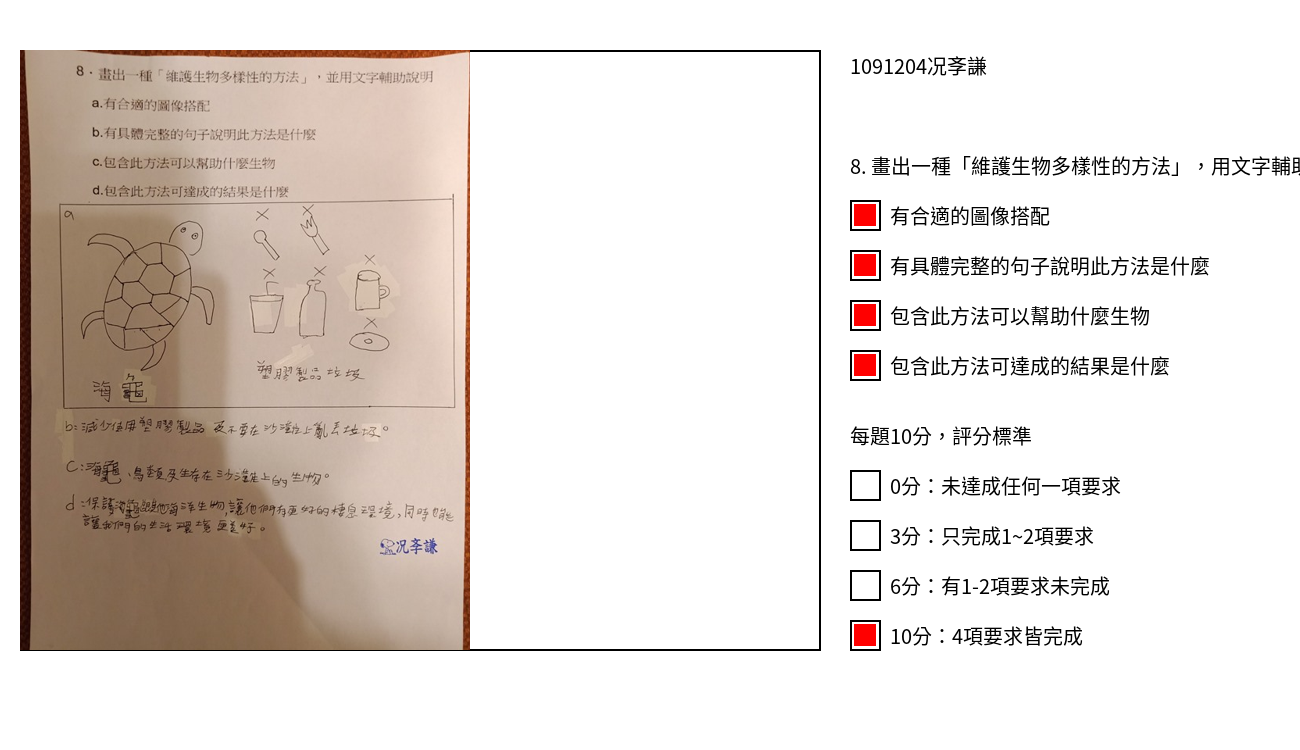 8．畫出一種「維護生物多樣性的方法」，並用文字輔助說明
a.有合適的圖像搭配
b.有具體完整的句子說明此方法是什麼
c.包含此方法可以幫助什麼生物
d.包含此方法可達成的結果是什麼
a
海龜
塑膠製品垃圾
b:減少使用塑膠製品 及不要在沙灘上亂丟垃圾。
C:海龜、鳥類及生存在沙灘上的生物。
d:保護海龜跟他海洋生物,讓他們有更好的棲息環境,同時能
讓我們的生活環境更美好。
況李謙
1091204況李謙
8. 畫出一種「維護生物多樣性的方法」，用文字輔助
有合適的圖像搭配
有具體完整的句子說明此方法是什麼
包含此方法可以幫助什麼生物
包含此方法可達成的結果是什麼
每題10分，評分標準
0分：未達成任何一項要求
3分：只完成1~2項要求
6分：有1-2項要求未完成
10分：4項要求皆完成